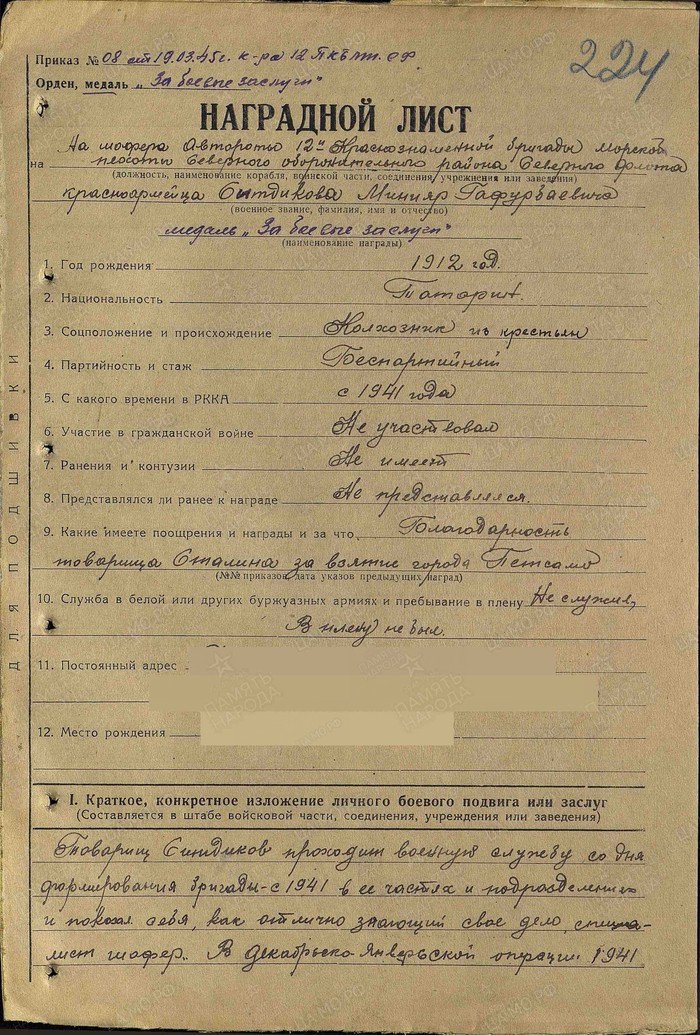 224
Приказ № 08 от 19.03.45г. к-ра 12 Пкбмп. СФ
Орден, медаль „За боевые заслуги"
НАГРАДНОЙ ЛИСТ
На шофера Автороты 12й Краснознаменной бригады Морской
на пехоты Северного оборонительного района Северного флота
(должность, наименование корабля, воинской части, соединения, учреждения или заведения)
красноармейца Ситдикова Минияр Гафурбаевича
(военное звание, фамилия, имя и отчество)
медаль „За боевые заслуги"
(наименование награды)
1. Год рождения 1912 год.
2. Национальность Татарин.
3. Соцположение и происхождение Колхозник из крестьян
4. Партийность и стаж Беспартийный
5. С какого времени в РККА с 1941 года
6. Участие в гражданской войне Не участвовал
7. Ранения и контузии Не имеет
8. Представлялся ли ранее к награде Не представлялся.
9. Какие имеете поощрения и награды и за что Благодарность
товарища Сталина за взятие города Петсамо
(№№ приказов, дата указов предыдущих наград)
10. Служба в белой или других буржуазных армиях и пребывание в плену Не служил,
В плену не был.
11. Постоянный адрес
12. Место рождения
I. Краткое, конкретное изложение личного боевого подвига или заслуг
(Составляется в штабе войсковой части, соединения, учреждения или заведения)
Товарищ Ситдиков проходит военную службу со дня
формирования бригады - с 1941 в ее частях и подразделениях
и показал себя, как отлично знающий свое дело, специа-
лист шофер. В декабрьско-январьской операции 1941
ДЛЯ ПОДШИВКИ
ПАМЯТЬ НАРОДА
ЦАМО.РФ